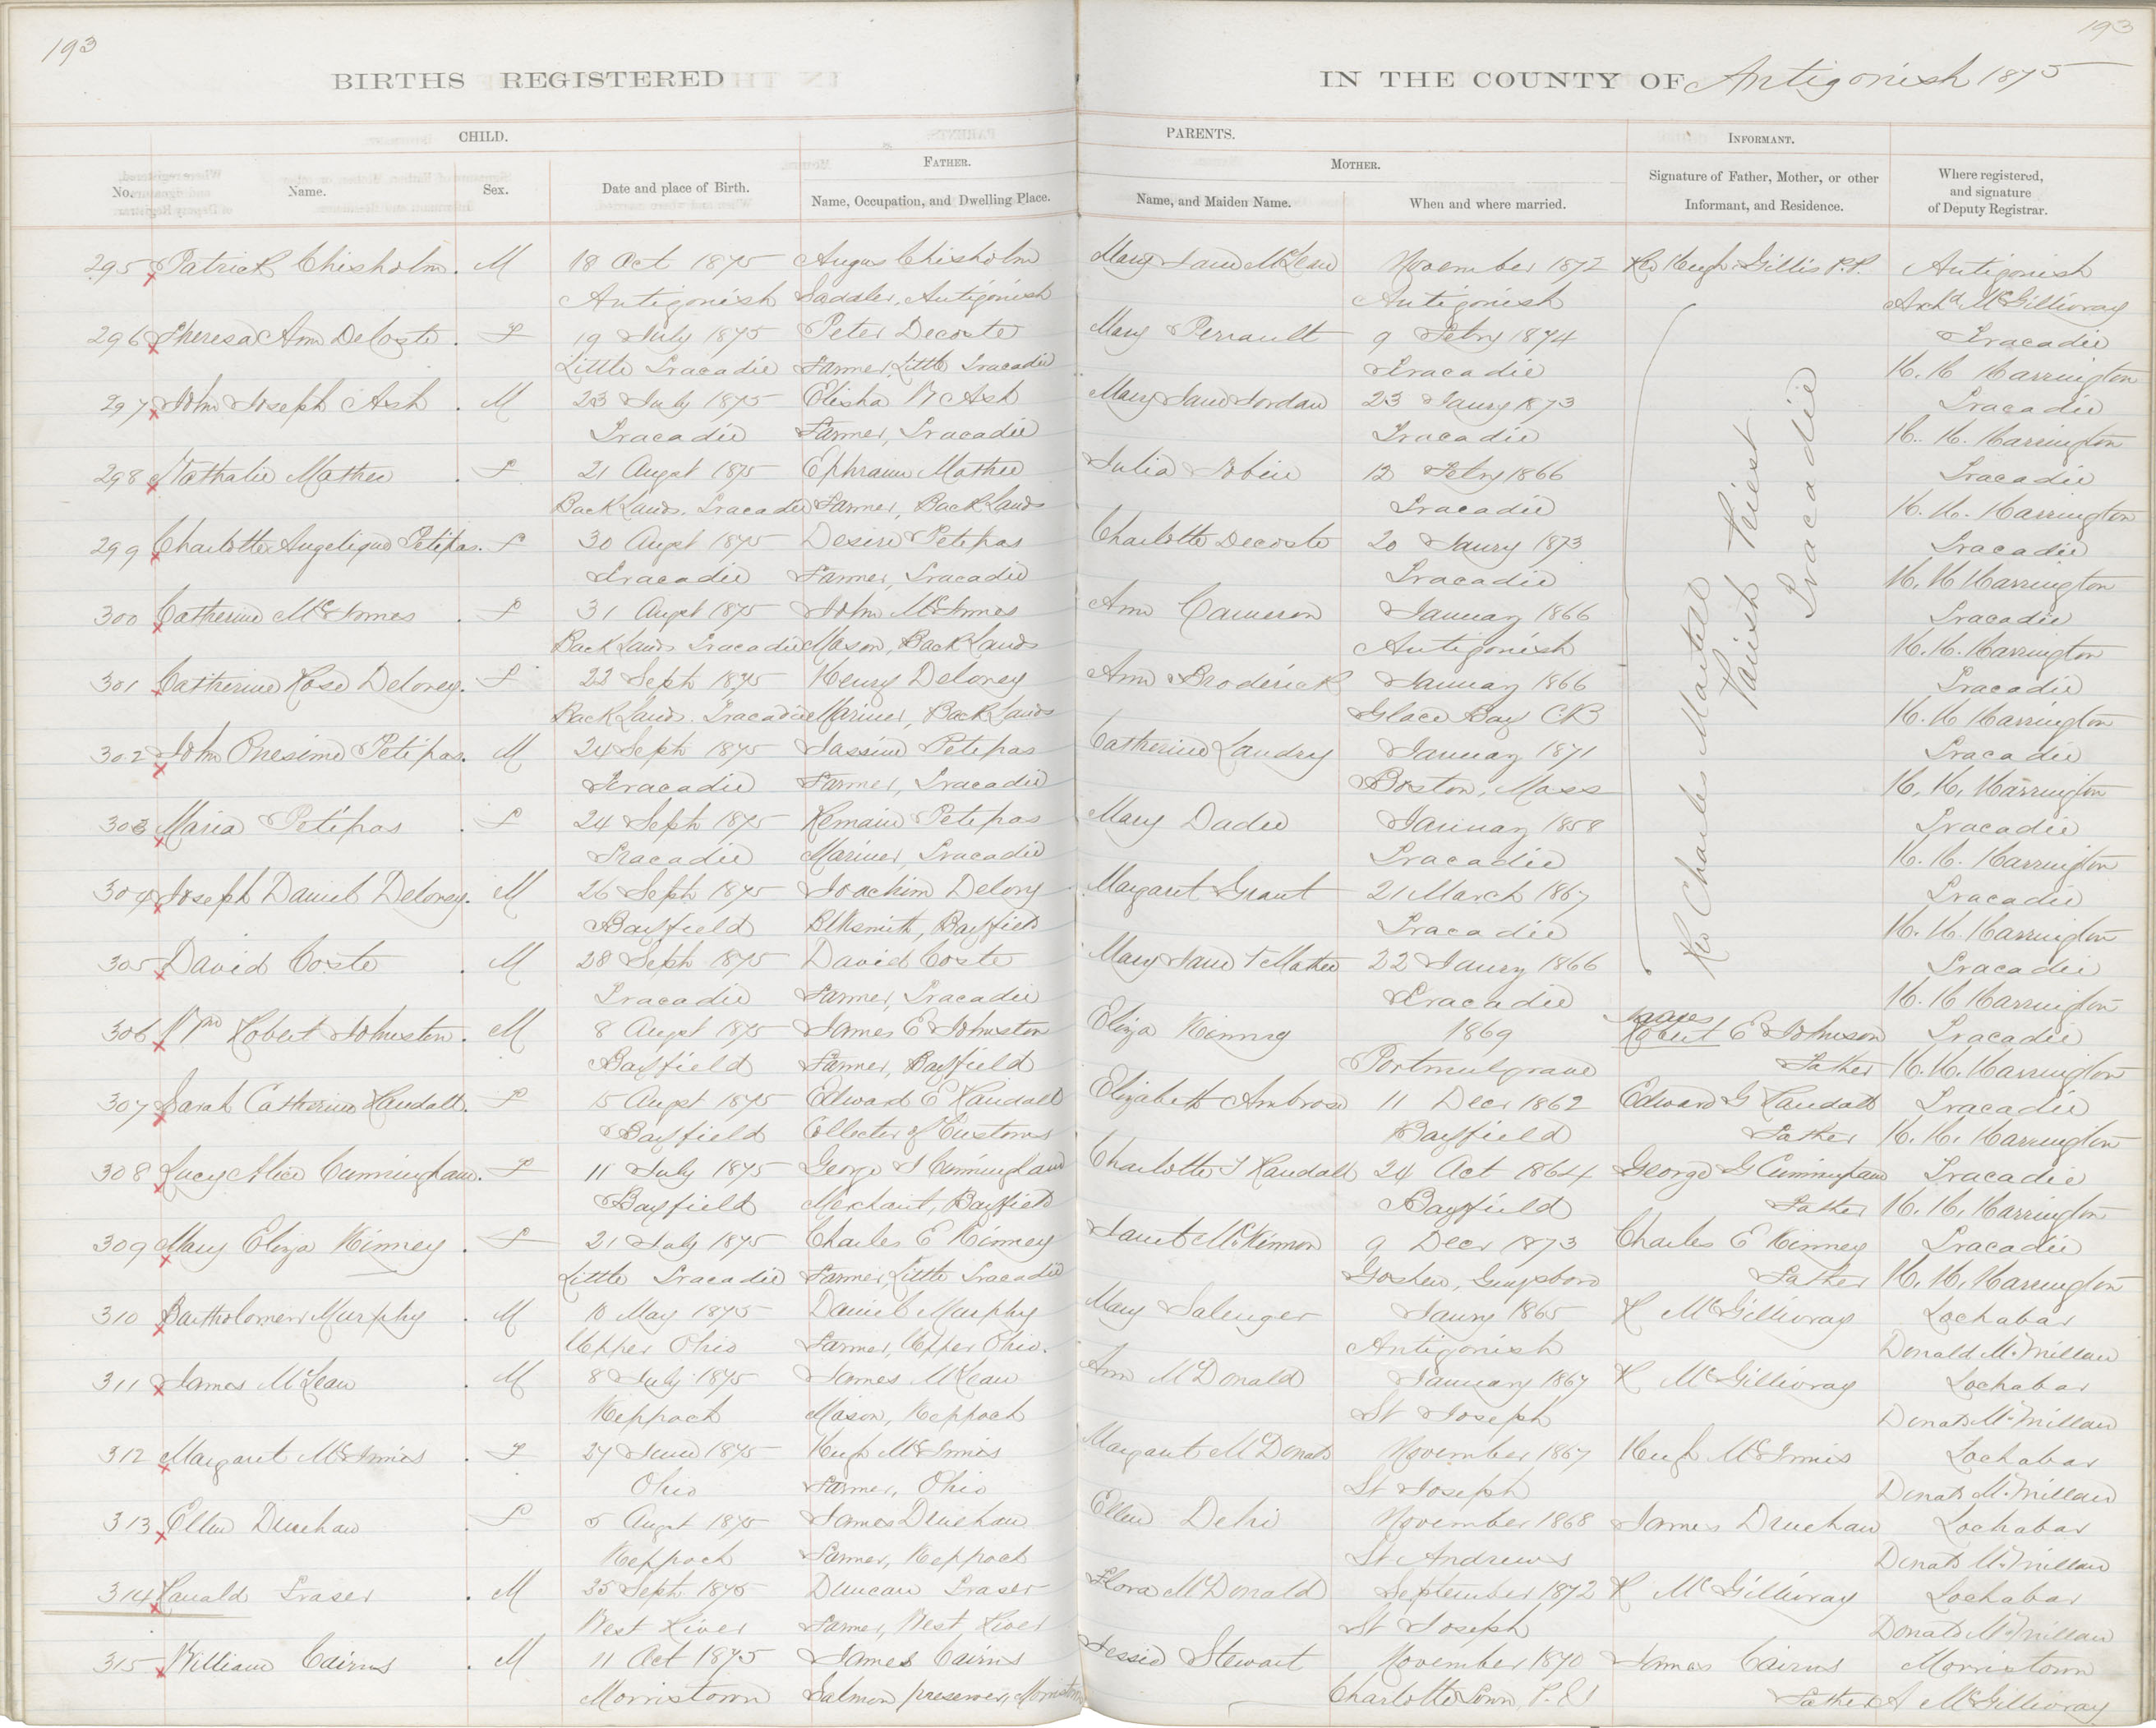 193
193
BIRTHS REGISTERED
IN THE COUNTY OF Antigonish 1875
CHILD.
PARENTS.
INFORMANT.
FATHER.
MOTHER.
No.
Name.
Sex.
Date and place of Birth.
Name, Occupation, and Dwelling Place.
Name, and Maiden Name.
When and where married.
Signature of Father, Mother, or other
Informant, and Residence.
Where registered,
and signature
of Deputy Registrar.
295 Patrick Chisholm. M 18 Oct 1875 Angus Chisholm Mary Jane McLean November 1872 Rev Hugh Gillis P.P. Antigonish
Antigonish Saddler, Antigonish Antigonish Archd McGillivray
296 Theresa Ann DeCoste. F 19 July 1875 Peter Decoste Mary Perrault 9 Febry 1874 Tracadie
Little Tracadie Farmer, Little Tracadie Tracadie H. H Harrington
297 John Joseph Ash. M 23 July 1875 Elisha W Ash Mary Jane Jordan 23 Jaury 1873 Tracadie
Tracadie Farmer, Tracadie Tracadie H. H. Harrington
298 Nathalie Mathee. F 21 Augst 1875 Ephraim Mathee Julia Bobin 12 Febry 1866 Tracadie
Back Lands. Tracadie Farmer, Back Lands Tracadie H. H. Harrington
299 Charlotte Angelique Petipas. F 30 Augst 1875 Desire Petipas Charlotte Decoste 20 Jaury 1873 Tracadie
Tracadie Farmer, Tracadie Tracadie H. H Harrington
300 Catherine McInnes. F 31 Augst 1875 John McInnes Ann Cameron January 1866 Tracadie
Back Lands Tracadie Mason, Back Lands Antigonish H. H. Harrington
301 Catherine Rose Deloney. F 22 Sept 1875 Henry Deloney Ann Broderick January 1866 Tracadie
Back Lands. Tracadie Mariner, Back Lands Glace Bay CB H. H Harrington
302 John Onesime Petipas. M 24 Sept 1875 Sassine Petipas Catherine Landry January 1871 Tracadie
Tracadie Farmer, Tracadie Boston, Mass H. H. Harrington
303 Maria Petipas. F 24 Sept 1875 Remain Petipas Mary Dadee January 1858 Tracadie
Tracadie Mariner, Tracadie Tracadie H. H. Harrington
304 Joseph Daniel Deloney. M 26 Sept 1875 Joachim Delony Margaret Grant 21 March 1867 Tracadie
Bayfield Blksmith, Bayfield Tracadie H. H. Harrington
305 David Coste. M 28 Sept 1875 David Coste Mary Jane Mathee 22 Jaury 1866 Tracadie
Tracadie Farmer, Tracadie Tracadie H. H Harrington
Rev Charles Martell
Parish Priest
Tracadie
306 Wm Robert Johnston. M 8 Augst 1875 James E Johnston Eliza Kinney 1869 James Robert E Johnson Tracadie
Bayfield Farmer, Bayfield Portmulgrave Father H. H. Harrington
307 Sarah Catherine Randall. F 15 Augst 1875 Edward E Randall Elizabeth Ambrose 11 Decr 1862 Edward G Randall Tracadie
Bayfield Collecter of Customs Bayfield Father H. H. Harrington
308 Lucy Alice Cunningham. F 11 July 1875 George J Cunningham Charlotte J Randall 24 Oct 1864 George G Cunningham Tracadie
Bayfield Merchant, Bayfield Bayfield Father H. H. Harrington
309 Mary Eliza Kinney. F 21 July 1875 Charles E Kinney Janet McKinnon 9 Decr 1873 Charles E Kinney Tracadie
Little Tracadie Farmer, Little Tracadie Goshen, Guysboro Father H. H. Harrington
310 Bartholomew Murphy. M 10 May 1875 Daniel Murphy Mary Salenger Jaury 1865 R McGillivray Lochabar
Upper Ohio Farmer, Upper Ohio. Antigonish Donald McMillan
311 James McLean. M 8 July 1875 James McLean Ann McDonald January 1867 R McGillivray Lochabar
Keppoch Mason, Keppoch St Joseph Donald McMillan
312 Margaret McInnis. F 27 June 1875 Hugh McInnis Margaret McDonald November 1867 Hugh McInnis Lochabar
Ohio Farmer, Ohio St Joseph Donald McMillan
313 Ellen Druehan F 5 Augst 1875 James Druehan Ellen Dehi November 1868 James Druehan Lochabar
Keppoch Farmer, Keppoch St Andrews Donald McMillan
314 Ranald Fraser. M 25 Sept 1875 Duncan Fraser Flora McDonald September 1872 R McGillivray Lochabar
West River Farmer, West River St Joseph Donald McMillan
315 William Cairns. M 11 Oct 1875 James Cairns Jessie Stewart November 1870 James Cairns Morristown
Morristown Salmon preserver, Morristown Charlotte Town P.E.I Father A McGillivray